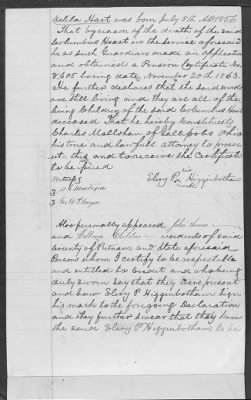 Della Hart was born July 5th AD 1856
That by reason of the death of the said
Columbus Hart in the service aforesaid
he as such Guardian made an application
and obtained a Pension Certificate No
8,605 bearing date, November 20th 1863.
He further declares that the said wards
are still living and they are all of the
living children of the said Columbus Hart
deceased That he hereby constitutes
Charles McClohan of Gallipolis Ohio
his true and lawful attorney to prosecute
this and to receive the Certificate
to be issued
Elery P. his Higginbotham
mark
Also personally appeared John
and William residents of said
County of Putnam and State aforesaid
Persons whom I certify to be respectable
and entitled to credit and who being
duly sworn say that they were present
and saw Elery P Higginbotham sign
his mark to the foregoing Declaration
and they further swear that they know
the said Elery P Higginbotham to be